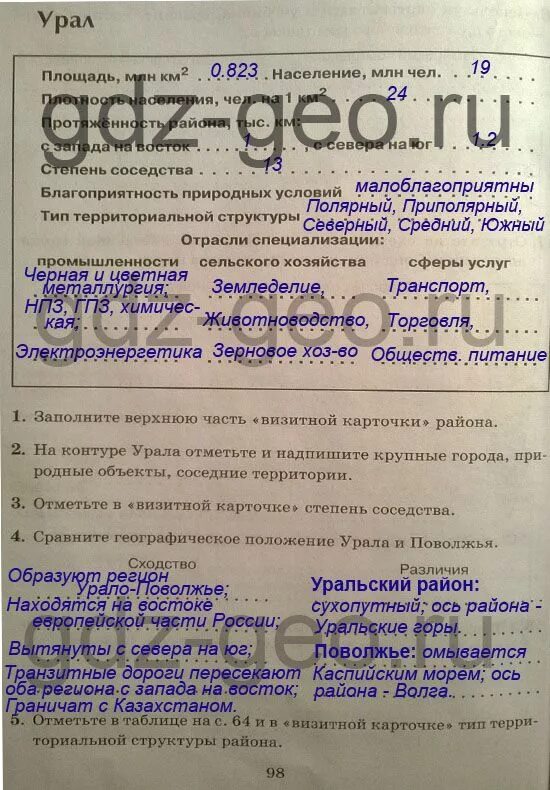 Урал
Площадь, млн км² 0.823 . Население, млн чел. 19
Плотность населения, чел. на 1 км² 24
Протяжённость района, тыс. км:
с запада на восток 1 , с севера на юг 1,2
Степень соседства 13
Благоприятность природных условий малоблагоприятны
Тип территориальной структуры Полярный, Приполярный,
Северный, Средний, Южный
Отрасли специализации:
промышленности сельского хозяйства сферы услуг
Черная и цветная
металлургия; Земледелие, Транспорт,
НПЗ, ГПЗ, химичес-
кая; Животноводство, Торговля,
Электроэнергетика Зерновое хоз-во Обществ. питание
gdz-geo.ru
gdz-geo.ru
1. Заполните верхнюю часть «визитной карточки» района.
2. На контуре Урала отметьте и надпишите крупные города, при-
родные объекты, соседние территории.
3. Отметьте в «визитной карточке» степень соседства.
4. Сравните географическое положение Урала и Поволжья.
Сходство Различия
Образуют регион
Урало-Поволжье;
Находятся на востоке
европейской части России;
Вытянуты с севера на юг;
Транзитные дороги пересекают
оба региона с запада на восток;
Граничат с Казахстаном.
Уральский район:
сухопутный; ось района -
Уральские горы.
Поволжье: омывается
Каспийским морем; ось
района - Волга.
gdz-geo.ru
5. Отметьте в таблице на с. 64 и в «визитной карточке» тип терри-
ториальной структуры района.
98